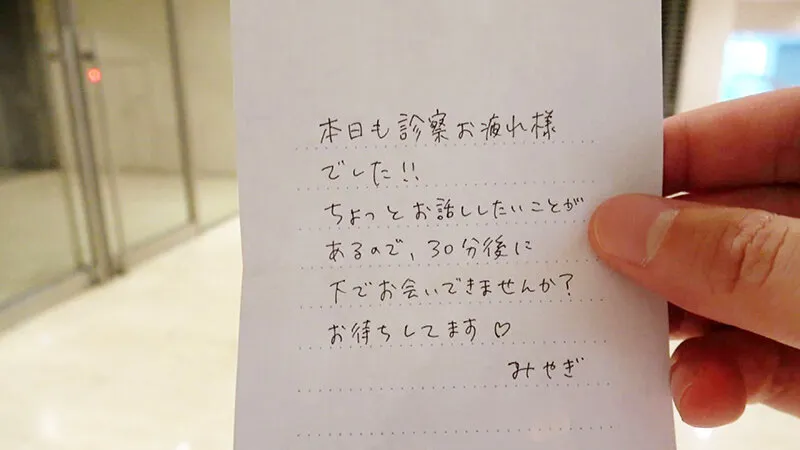 本日も診察お疲れ様
でした!!
ちょっとお話ししたいことが
あるので、30分後に
下でお会いできませんか?
お待ちしてます♡
みやぎ